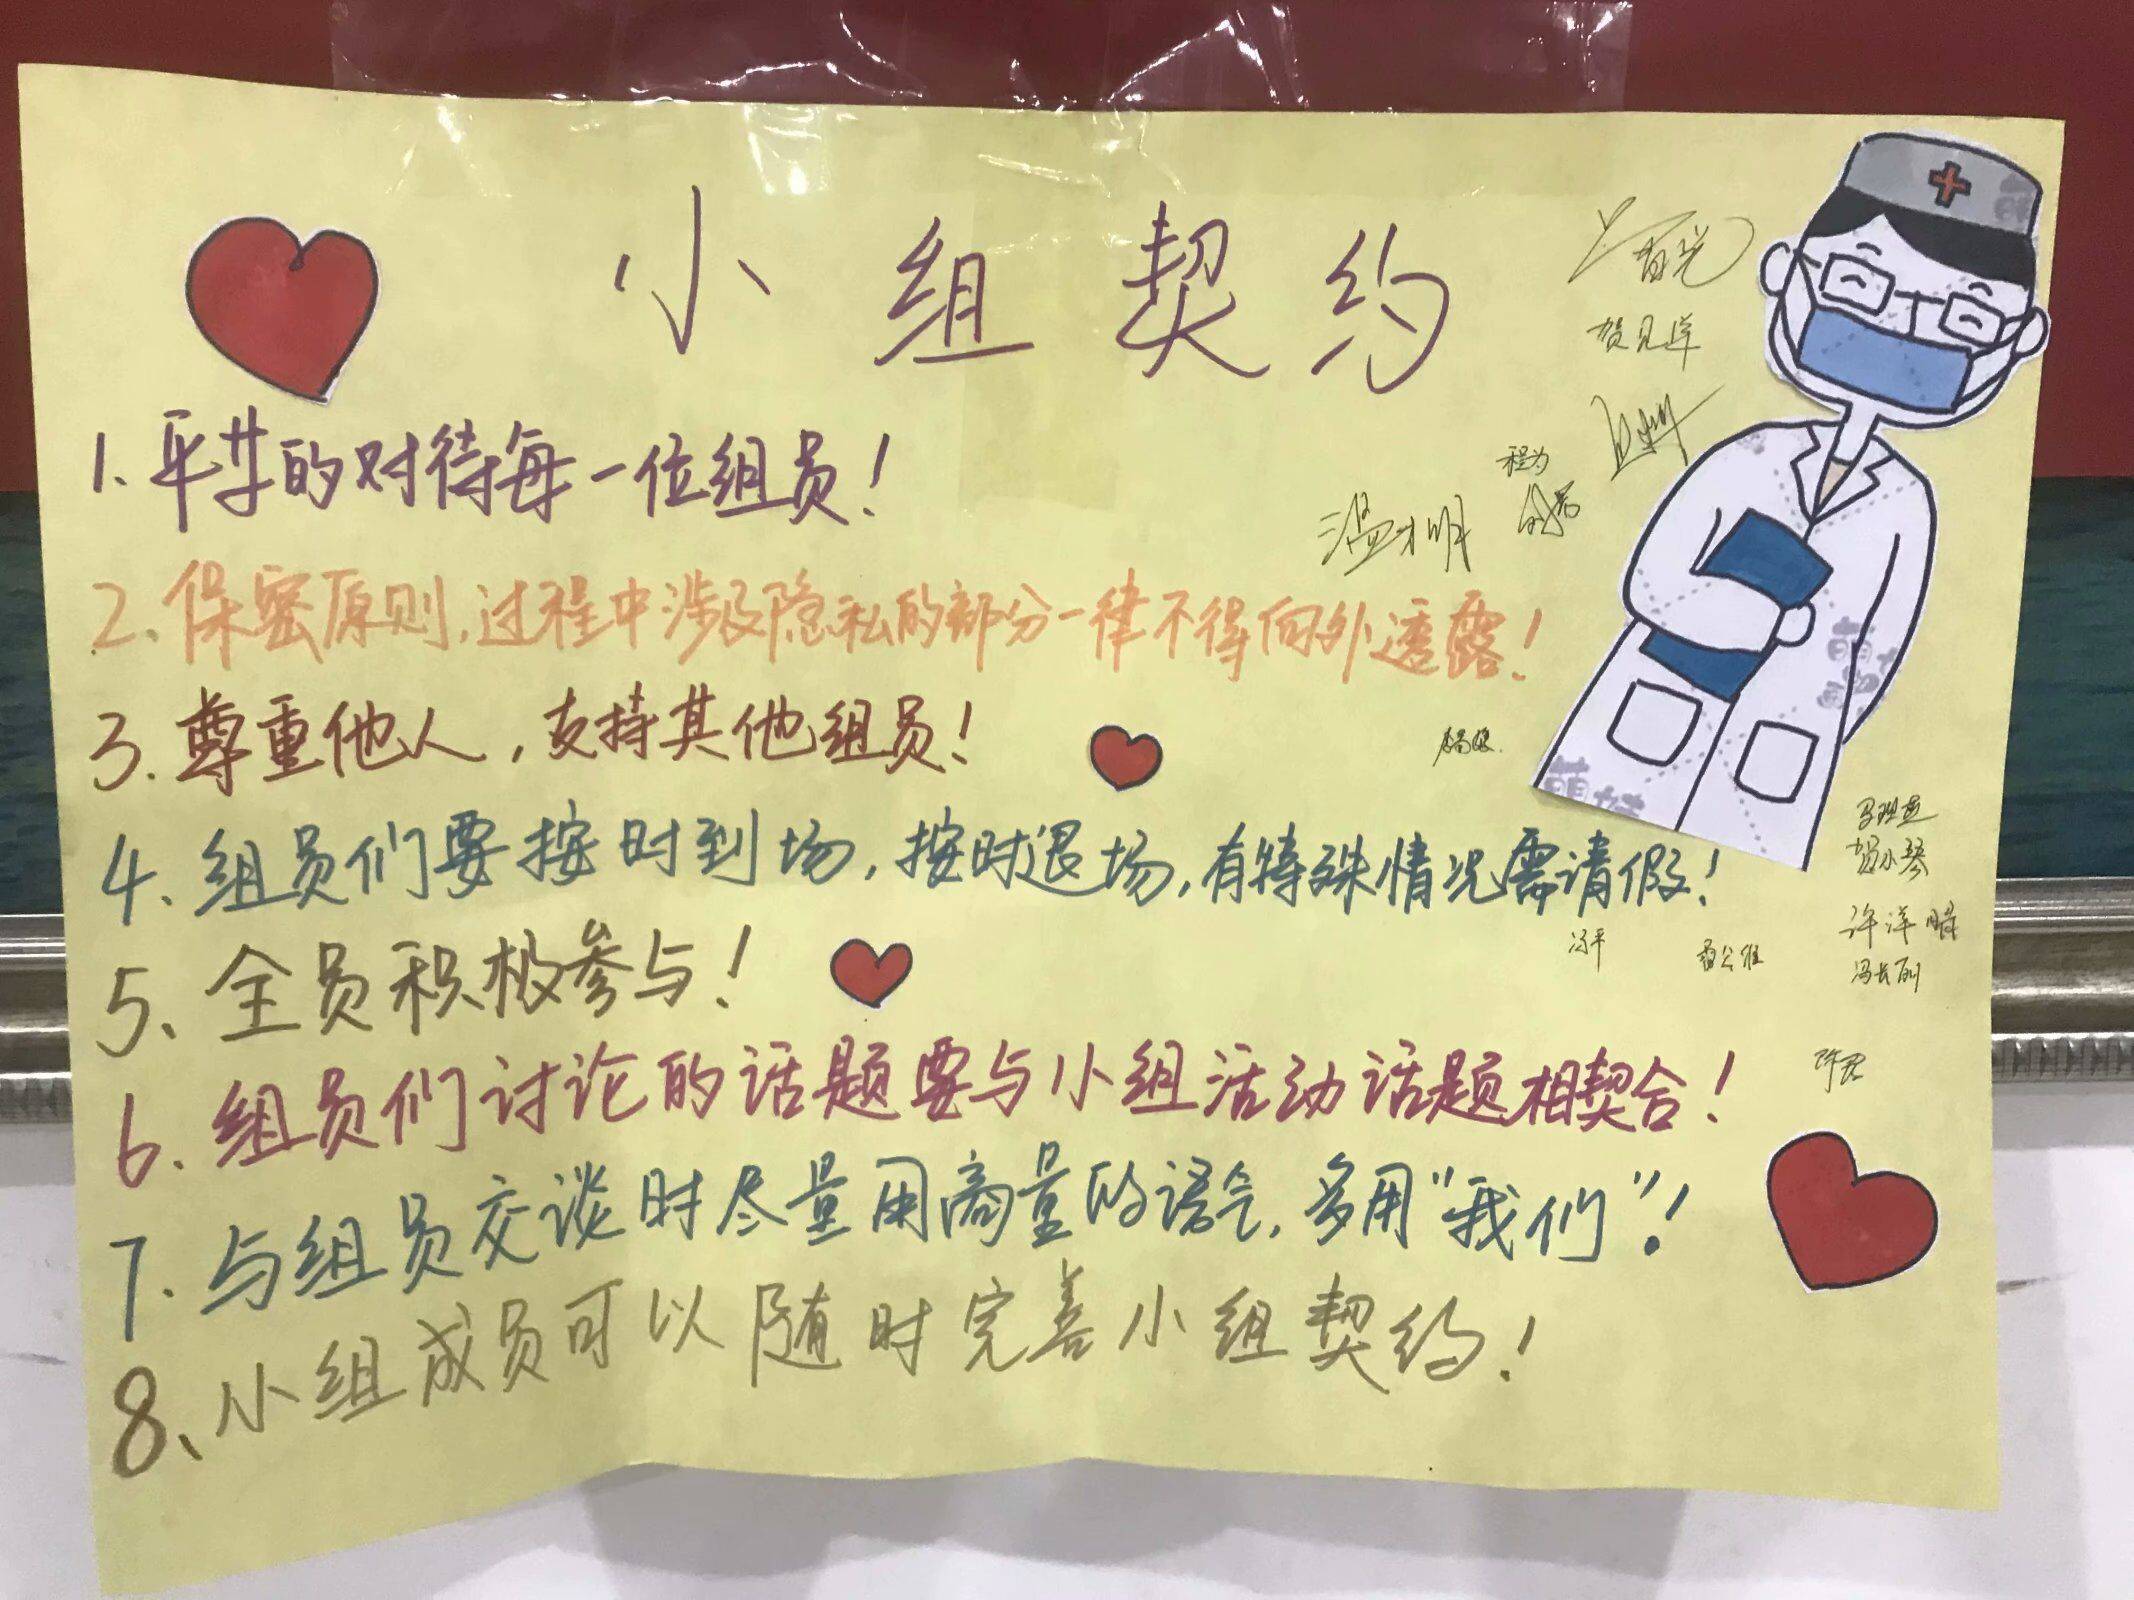 小组契约
1.平井的对待每一位组员！
2.保密原则,过程中涉及隐私的部分一律不得向外透露！
3.尊重他人,支持其他组员！
4、组员们要按时到场,按时退场,有特殊情况需请假！
5、全员积极参与！
6、组员们讨论的话题要与小组活动话题相契合！
7.与组员交谈时尽量用商量的语气,多用"我们"！
8、小组成员可以随时完善小组契约！
温才明
贺小琴
许洋晴
冯平
许君